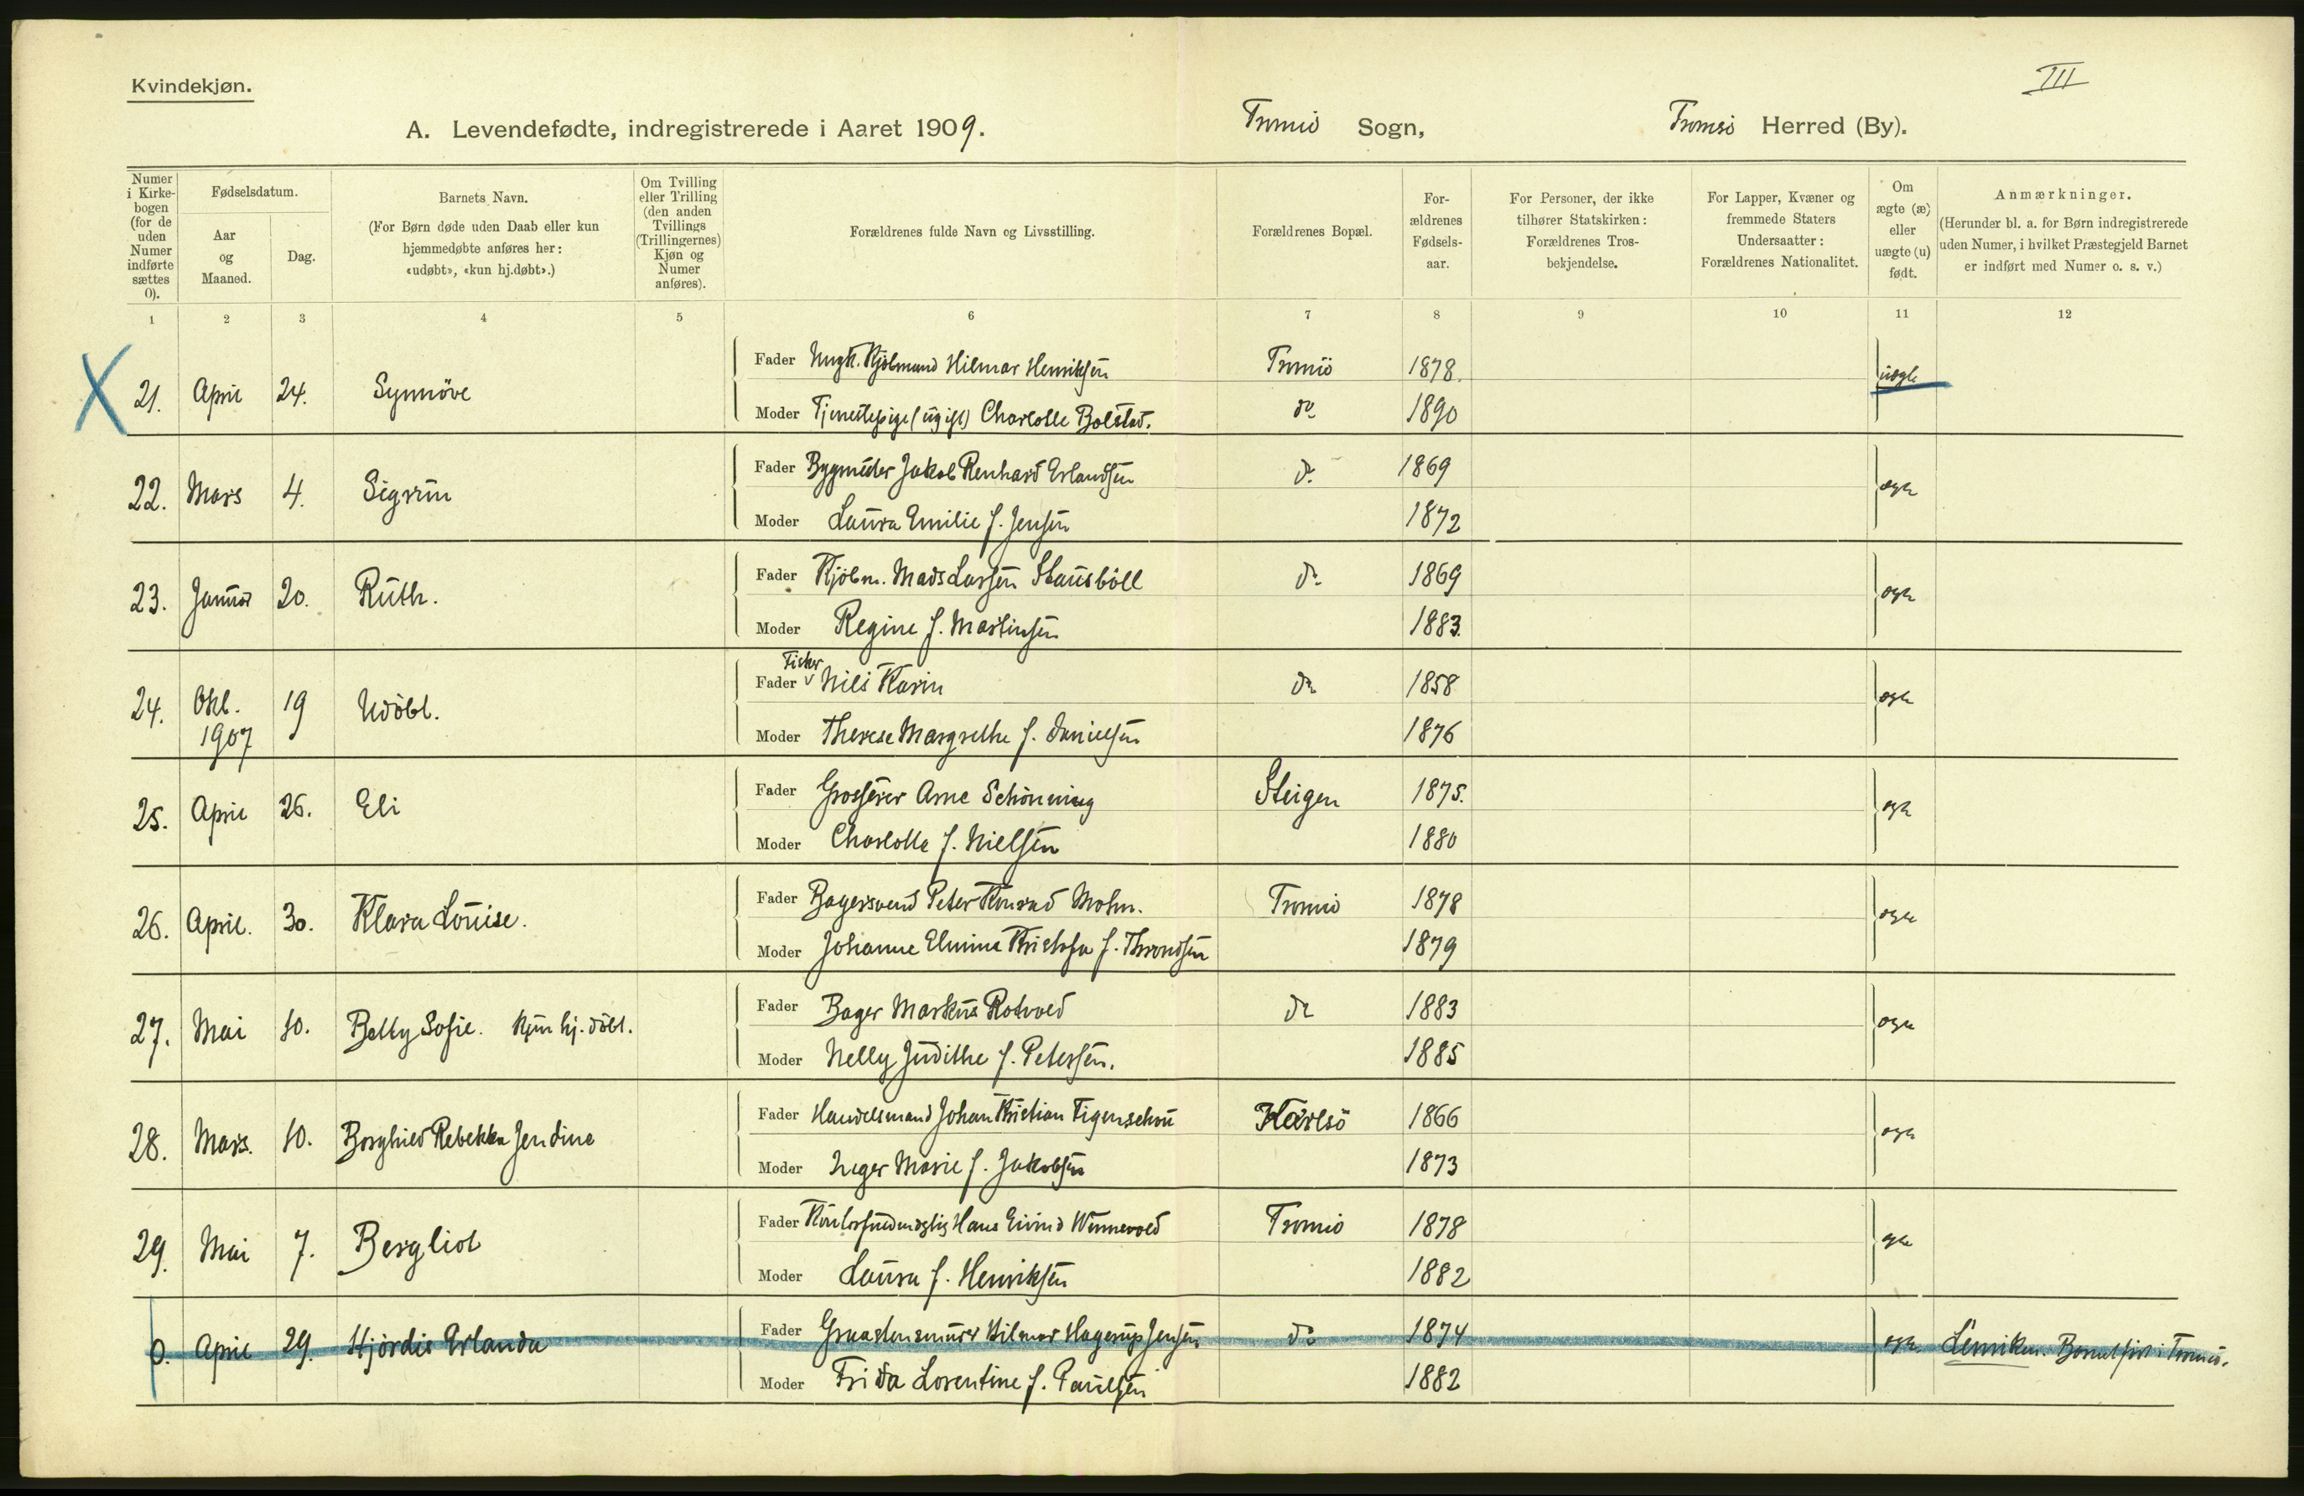 Kvindekjøn.
III
A. Levendefødte, indregistrerede i Aaret 1909. Tromsö Sogn, Tromsö Herred (By).
Numer i Kirkebogen (for de uden Numer indførte sættes 0).
Fødselsdatum.
Aar og Maaned.
Dag.
Barnets Navn.
(For Børn døde uden Daab eller kun hjemmedøbte anføres her: «udøbt», «kun hj.døbt».)
Om Tvilling eller Trilling (den anden Tvillings (Trillingernes) Kjøn og Numer anføres).
Forældrenes fulde Navn og Livsstilling.
Forældrenes Bopæl.
Forældrenes Fødselsaar.
For Personer, der ikke tilhører Statskirken: Forældrenes Trosbekjendelse.
For Lapper, Kvæner og fremmede Staters Undersaatter: Forældrenes Nationalitet.
Om ægte (æ) eller uægte (u) født.
Anmærkninger.
(Herunder bl. a. for Børn indregistrerede uden Numer, i hvilket Præstegjeld Barnet er indført med Numer o. s. v.)
1 2 3 4 5 6 7 8 9 10 11 12
X 21. April 24. Synnöve
Fader Ungk. Kjöbmand Hilmar Henriksen Tromsö 1878. uægte
Moder Tjenestepige (ugift) Charlotte Bolstad. do 1890
22. Mars 4. Sigrun
Fader Bygmester Jakob Renhard Erlandsen do 1869 ægte
Moder Laura Emilie f. Jensen 1872
23. Januar 20. Ruth.
Fader Kjöbm. Mads Larsen Stausböll do 1869 ægte
Moder Regine f. Martinsen 1883.
24. Okt. 1907 19 Udöbt.
Fader Fisker Nils Karin do 1858 ægte
Moder Therese Margrethe f. Danielsen 1876
25. April 26. Eli
Fader Grosserer Arne Schönning Steigen 1875. ægte
Moder Charlotte f. Nielsen 1880
26. April. 30. Klara Louise.
Fader Bagersvend Peter Konrad Mohn. Tromsö 1878 ægte
Moder Johanne Elmine Kristofa f. Throndsen 1879
27. Mai 10. Betty Sofie. Kun hj. döbt.
Fader Bager Markus Rotvold do 1883 ægte
Moder Nelly Judithe f. Petersen. 1885
28. Mars. 10. Borghild Rebekka Jendine
Fader Handelsmand Johan Kristian Figenschou Karlsö 1866 ægte
Moder Inger Marie f. Jakobsen 1873
29. Mai 7. Bergliot
Fader Kontorfuldmægtig Hans Eivind Winnevold Tromsö 1878 ægte
Moder Laura f. Henriksen 1882
0. April 29. Hjördis Erlanda
Fader Graastensmurer Hilmar Hagerup Jensen do 1874 ægte Lenviken. Barnet født i Tromsö.
Moder Frida Lorentine f. Paulsen 1882